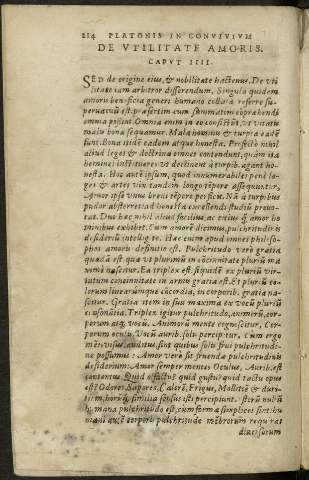 214 PLATONIS IN CONVIVIVM
DE VTILITATE AMORIS.
CAPVT IIII.
SED de origine eius, & nobilitate hactenus. De vti
litate iam arbitror disserendum. Singula quidem
amoris beneficia generi humano collata referre su-
peruacuũ est: præsertim cum summatim comprahendi
omnia possint. Omnia enim in eo consistũt, vt vitatis
malis bona sequamur. Mala hominũ & turpia eadẽ
sunt. Bona itidẽ eadem atque honesta. Profectò nihil
aliud leges & doctrinæ omnes contendunt, quàm ita
homines instituere vt declinent à turpib. agant ho-
nesta. Hoc autẽ ipsum, quod innumerabiles penè le-
ges & artes vix tandem longo tẽpore assequuntur,
Amor ipse vnus breui tẽpore perficit. Nã à turpibus
pudor absterret: ad honesta excellendi studiũ prouo-
cat. Duo hæc nihil aliud facilius ac citius q̃ amor ho
minibus exhibet. Cum amorẽ dicimus, pulchritudinis
desideriũ intelligite. Hæc enim apud omnes philoso-
phos amoris definitio est. Pulchritudo verò gratia
quædã est quæ vt plurimũ in cõcinnitate pluriũ ma
ximè nascitur. Ea triplex est. Siquidẽ ex pluriũ vir-
tutum concinnitate in animis gratia est. Et pluriũ co-
lorum linearumque cõcordia, in corporib. gratia na-
scitur. Gratia item in sonis maxima ex vocũ pluriũ
cõsonãtia. Triplex igitur pulchritudo, animorũ, cor-
porum atq; vocũ. Animorũ mente cognoscitur, Cor-
porum oculis. Vocũ auribus solũ percipitur. Cum ergo
mens, visus, auditus sint quibus solis frui pulchritudi-
ne possumus: Amor verò sit fruendæ pulchritudinis
desiderium: Amor semper mente, Oculis, Aurib. est
contentus. Quid olfactu? quid gustu? quid tactu opus
est? Odores, Sapores, Calorẽ, Frigus, Mollitiẽ & duri-
tiem, horũq; similia sensus isti percipiunt. Istorũ nulla
humana pulchritudo est, cum formæ simplices sint: hu
mani autẽ corporis pulchritudo mẽbrorum requirat
diuersorum